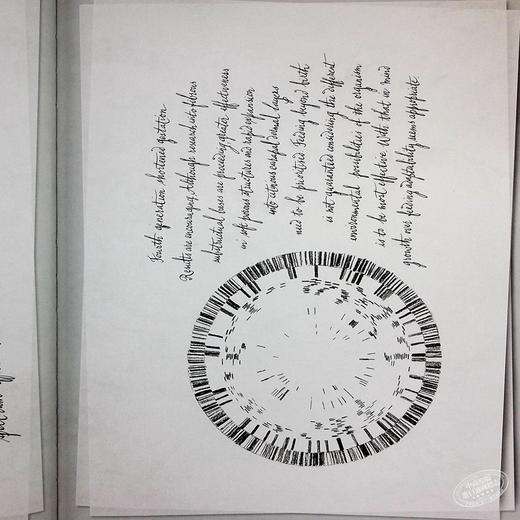 Fourth generation shortened gestation.
Results are encouraging. Although research into fibrous
substructual bases are providing greater effectiveness
in soft porous structures and rapid expansion
into citrous carapal dermal layers
need to be prioritised. Feeding beyond birth
is not guaranteed considering the different
environmental possibilities of the organism
is to be most effective. With that in mind
growth over feeding adaptability seems appropriate.